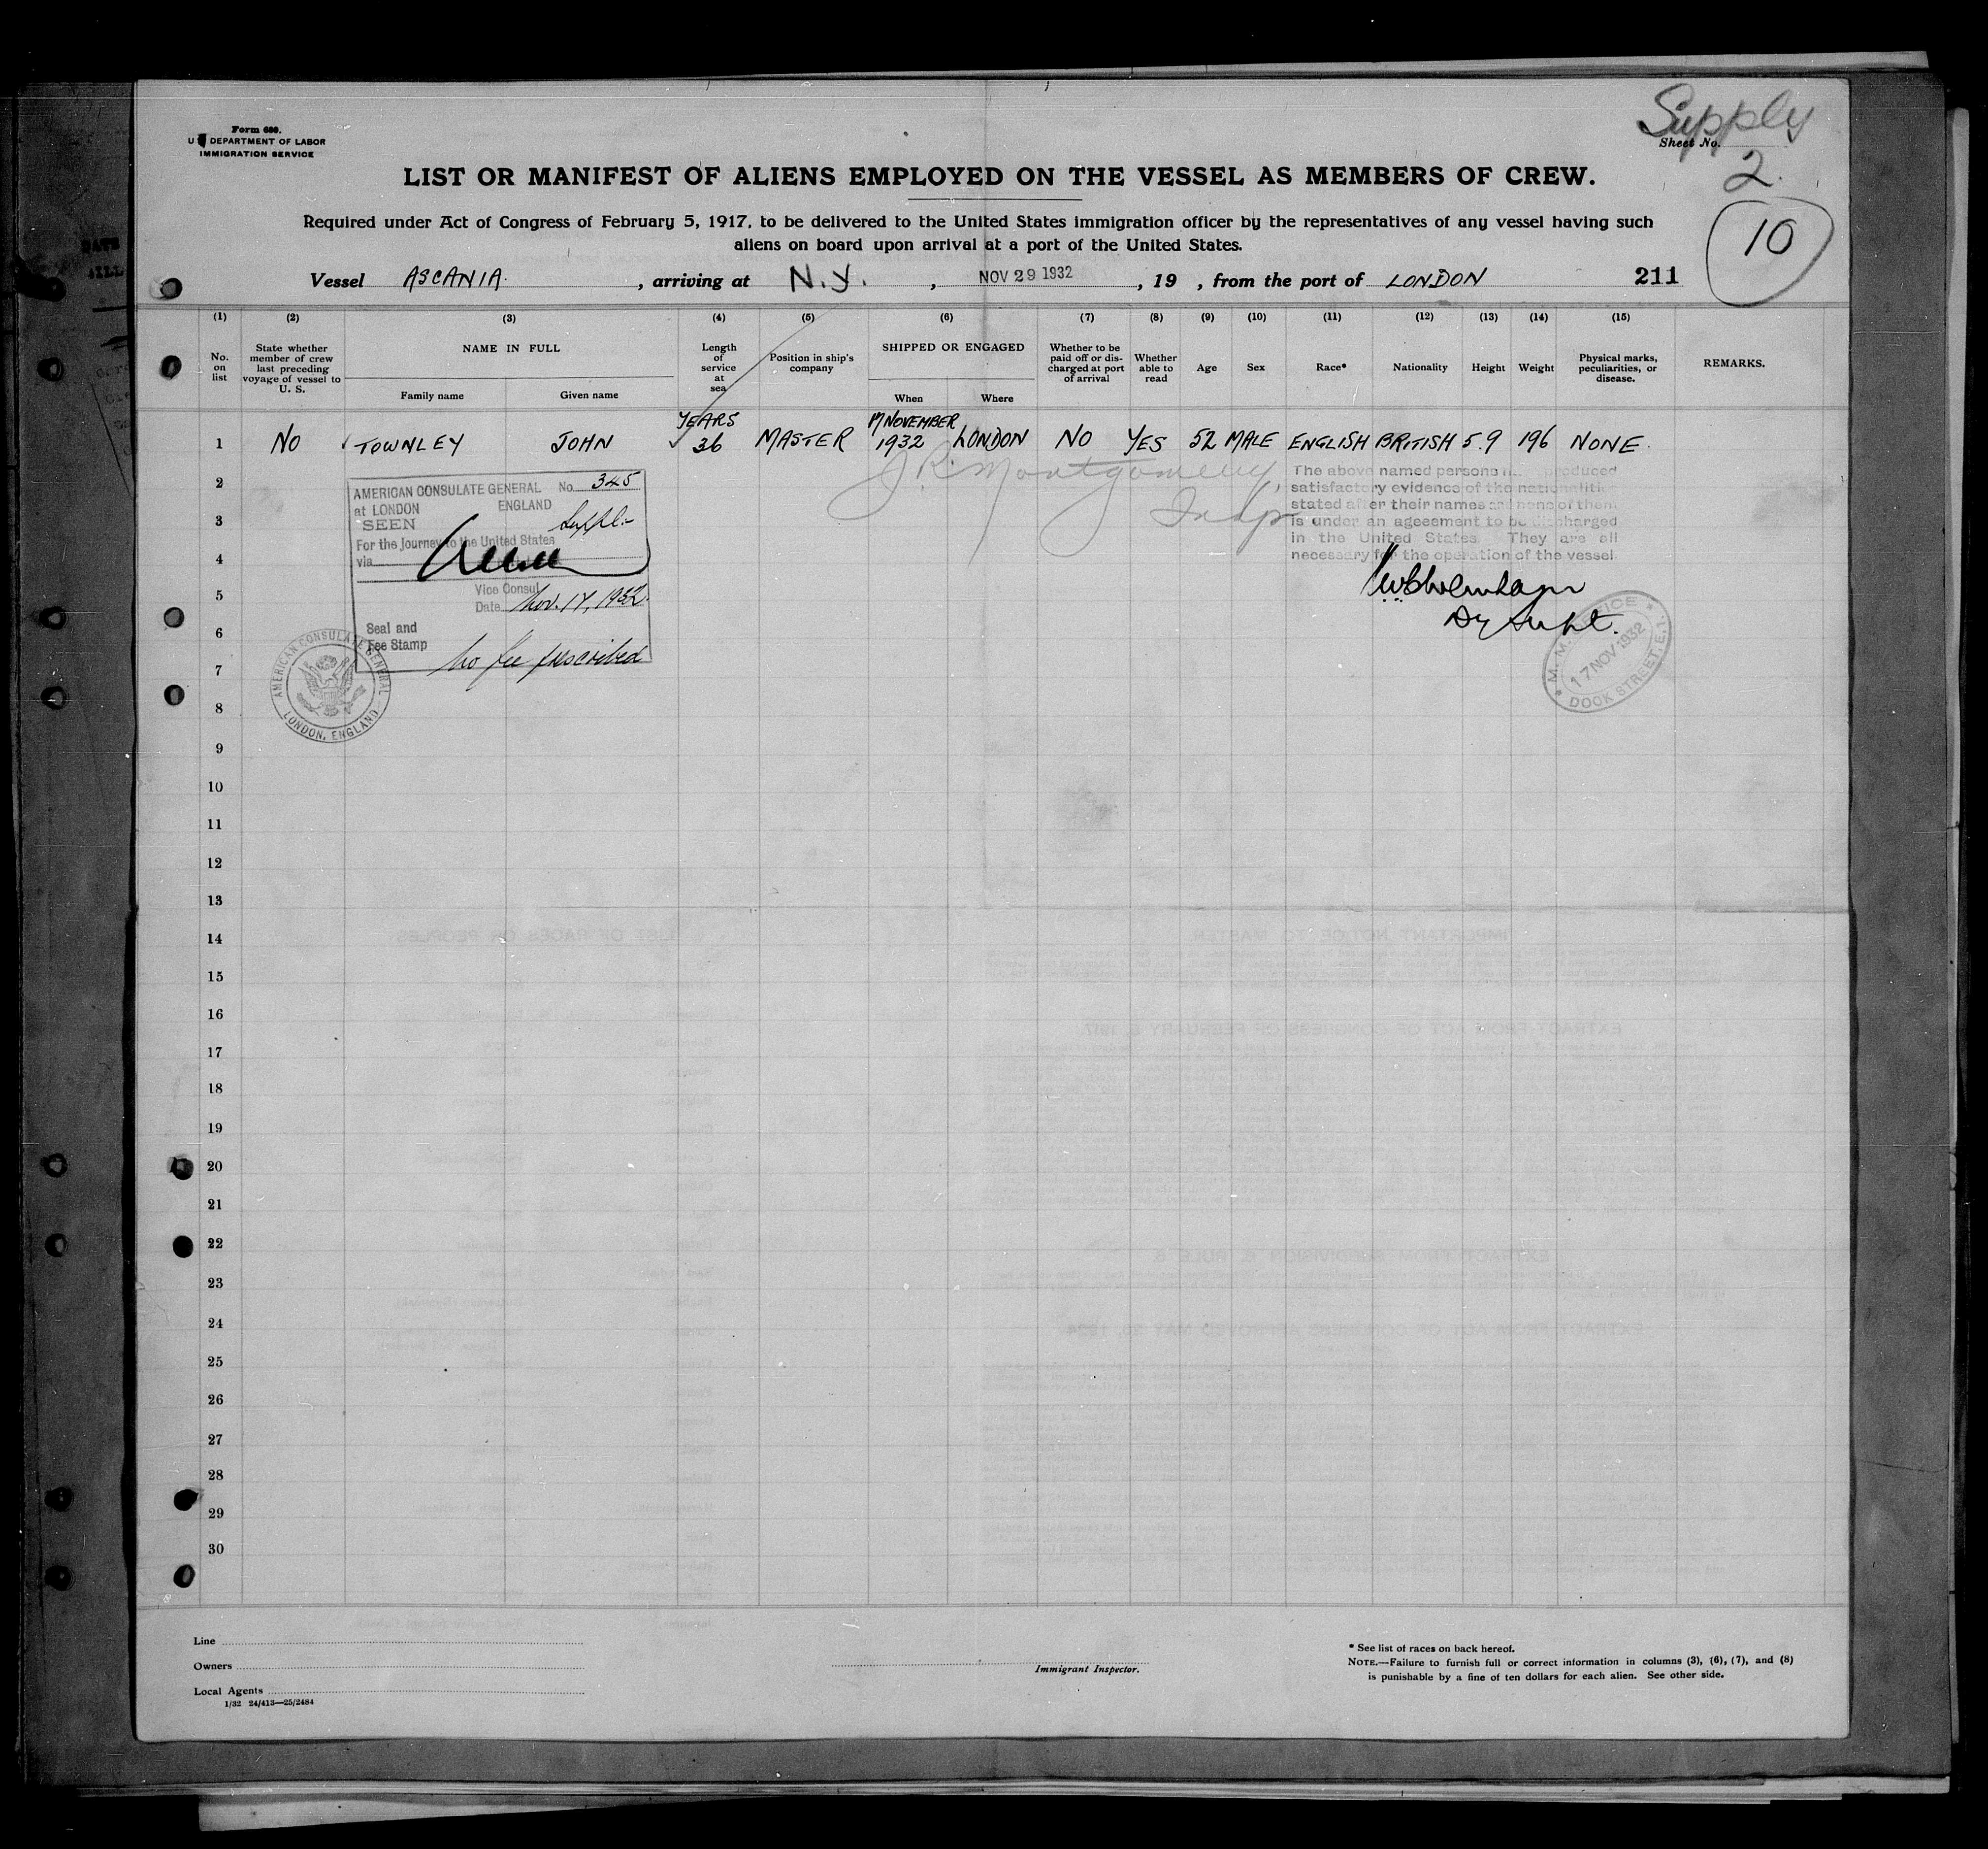 Form 680.
U DEPARTMENT OF LABOR
IMMIGRATION SERVICE
Supply
Sheet No.
2.
10
LIST OR MANIFEST OF ALIENS EMPLOYED ON THE VESSEL AS MEMBERS OF CREW.
Required under Act of Congress of February 5, 1917, to be delivered to the United States immigration officer by the representatives of any vessel having such
aliens on board upon arrival at a port of the United States.
Vessel ASCANIA , arriving at N.Y. , NOV 29 1932 , 19 , from the port of LONDON 211
(1) (2) (3) (4) (5) (6) (7) (8) (9) (10) (11) (12) (13) (14) (15)
No. on list
State whether member of crew last preceding voyage of vessel to U. S.
NAME IN FULL
Family name Given name
Length of service at sea
Position in ship's company
SHIPPED OR ENGAGED
When Where
Whether to be paid off or discharged at port of arrival
Whether able to read
Age
Sex
Race*
Nationality
Height
Weight
Physical marks, peculiarities, or disease.
REMARKS.
YEARS 17 NOVEMBER
1 NO TOWNLEY JOHN 36 MASTER 1932 LONDON NO YES 52 MALE ENGLISH BRITISH 5.9 196 NONE.
J. R. Montgomery,
Insp
The above named persons produced
satisfactory evidence of the nationalities
stated after their names and none of them
is under an ageement to be discharged
in the United States. They are all
necessary for the operation of the vessel.
Dy Supt.
M. M. OFFICE
17 NOV 1932
DOCK STREET, E.1.
AMERICAN CONSULATE GENERAL No. 345
at LONDON ENGLAND
SEEN Suppl.
For the Journey to the United States
via
Vice Consul
Date Nov. 17, 1932.
Seal and
Fee Stamp
No fee prescribed
AMERICAN CONSULATE GENERAL
LONDON, ENGLAND
2
3
4
5
6
7
8
9
10
11
12
13
14
15
16
17
18
19
20
21
22
23
24
25
26
27
28
29
30
Line
Owners
Local Agents
1/32 24/413—25/2484
Immigrant Inspector.
* See list of races on back hereof.
NOTE.—Failure to furnish full or correct information in columns (3), (6), (7), and (8)
is punishable by a fine of ten dollars for each alien. See other side.